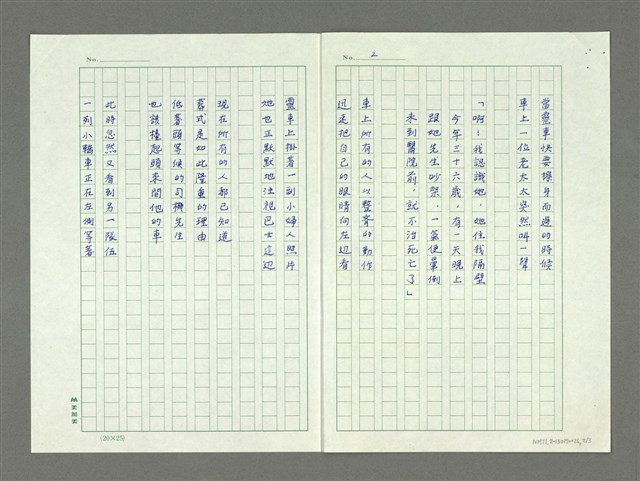 No. 2
當靈車快要擦身而過的時候
車上一位老太太突然叫一聲
「啊！我認識她，她住我隔壁
今年三十六歲，有一天晚上
跟她先生吵架，一氣便暈倒
未到醫院前，就不治死亡了」
車上所有的人以整齊的動作
迅速把自己的眼睛向左边看
No.
靈車上掛著一副小婦人照片
她也正默默地注視巴士這边
現在所有的人都已知道
葬式是如此隆重的理由
低著頭等候的司機先生
也該擡起頭來開他的車
此時忽然又看到另一隊伍
一列小轎車正在左側等著
(20×25)